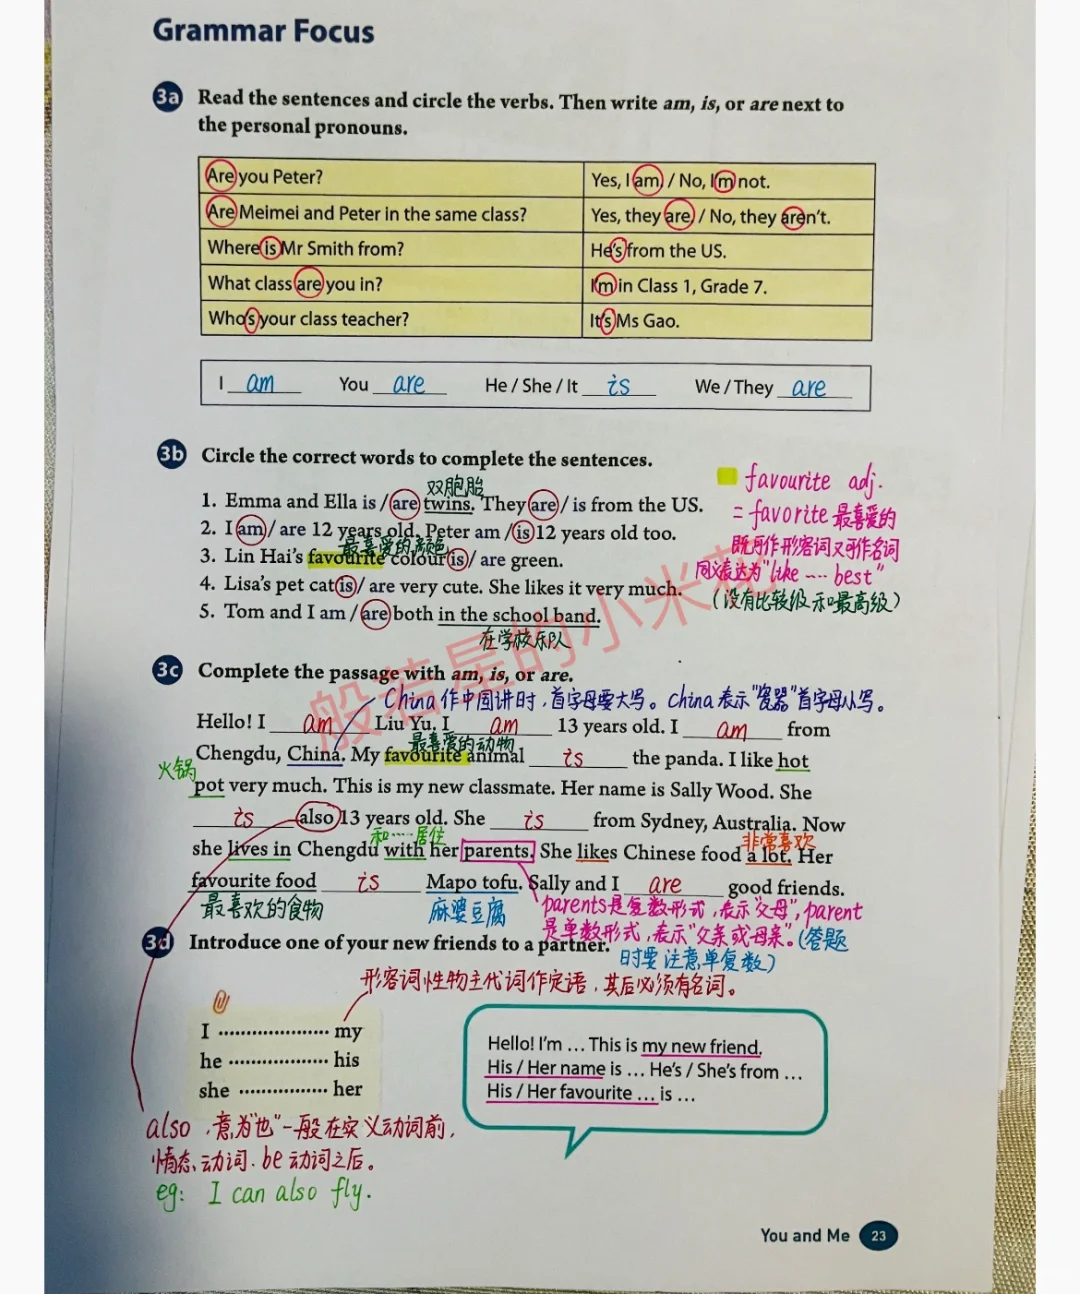 Grammar Focus
3a Read the sentences and circle the verbs. Then write am, is, or are next to
the personal pronouns.
Are you Peter? Yes, I am. / No, I'm not.
Are Meimei and Peter in the same class? Yes, they are. / No, they aren't.
Where is Mr Smith from? He's from the US.
What class are you in? I'm in Class 1, Grade 7.
Who's your class teacher? It's Ms Gao.
I am You are He / She / It is We / They are
3b Circle the correct words to complete the sentences.
favourite adj.
双胞胎
1. Emma and Ella is / are twins. They are / is from the US.
= favorite 最喜爱的
2. I am / are 12 years old. Peter am / is 12 years old too.
既可作形容词又可作名词
最喜爱的颜色
3. Lin Hai's favourite colour is / are green.
同义表达为"like .... best"
4. Lisa's pet cat is / are very cute. She likes it very much.
(没有比较级和最高级)
5. Tom and I am / are both in the school band.
在学校乐队
3c Complete the passage with am, is, or are.
China 作中国讲时,首字母要大写。China表示"瓷器"首字母小写。
Hello! I am Liu Yu. I am 13 years old. I am from
最喜爱的动物
Chengdu, China. My favourite animal is the panda. I like hot
火锅
pot very much. This is my new classmate. Her name is Sally Wood. She
is also 13 years old. She is from Sydney, Australia. Now
和....居住
非常喜欢
she lives in Chengdu with her parents. She likes Chinese food a lot. Her
favourite food is Mapo tofu. Sally and I are good friends.
最喜欢的食物
麻婆豆腐
parents是复数形式,表示"父母",parent
是单数形式,表示"父亲或母亲"。(答题
时要注意单复数)
3d Introduce one of your new friends to a partner.
形容词性物主代词作定语,其后必须有名词。
I .................... my
he .................. his
she ................ her
Hello! I'm … This is my new friend.
His / Her name is … He's / She's from …
His / Her favourite … is …
also ,意为"也"一般在实义动词前,
情态动词、be动词之后。
eg: I can also fly.
You and Me 23
般若星的小米花